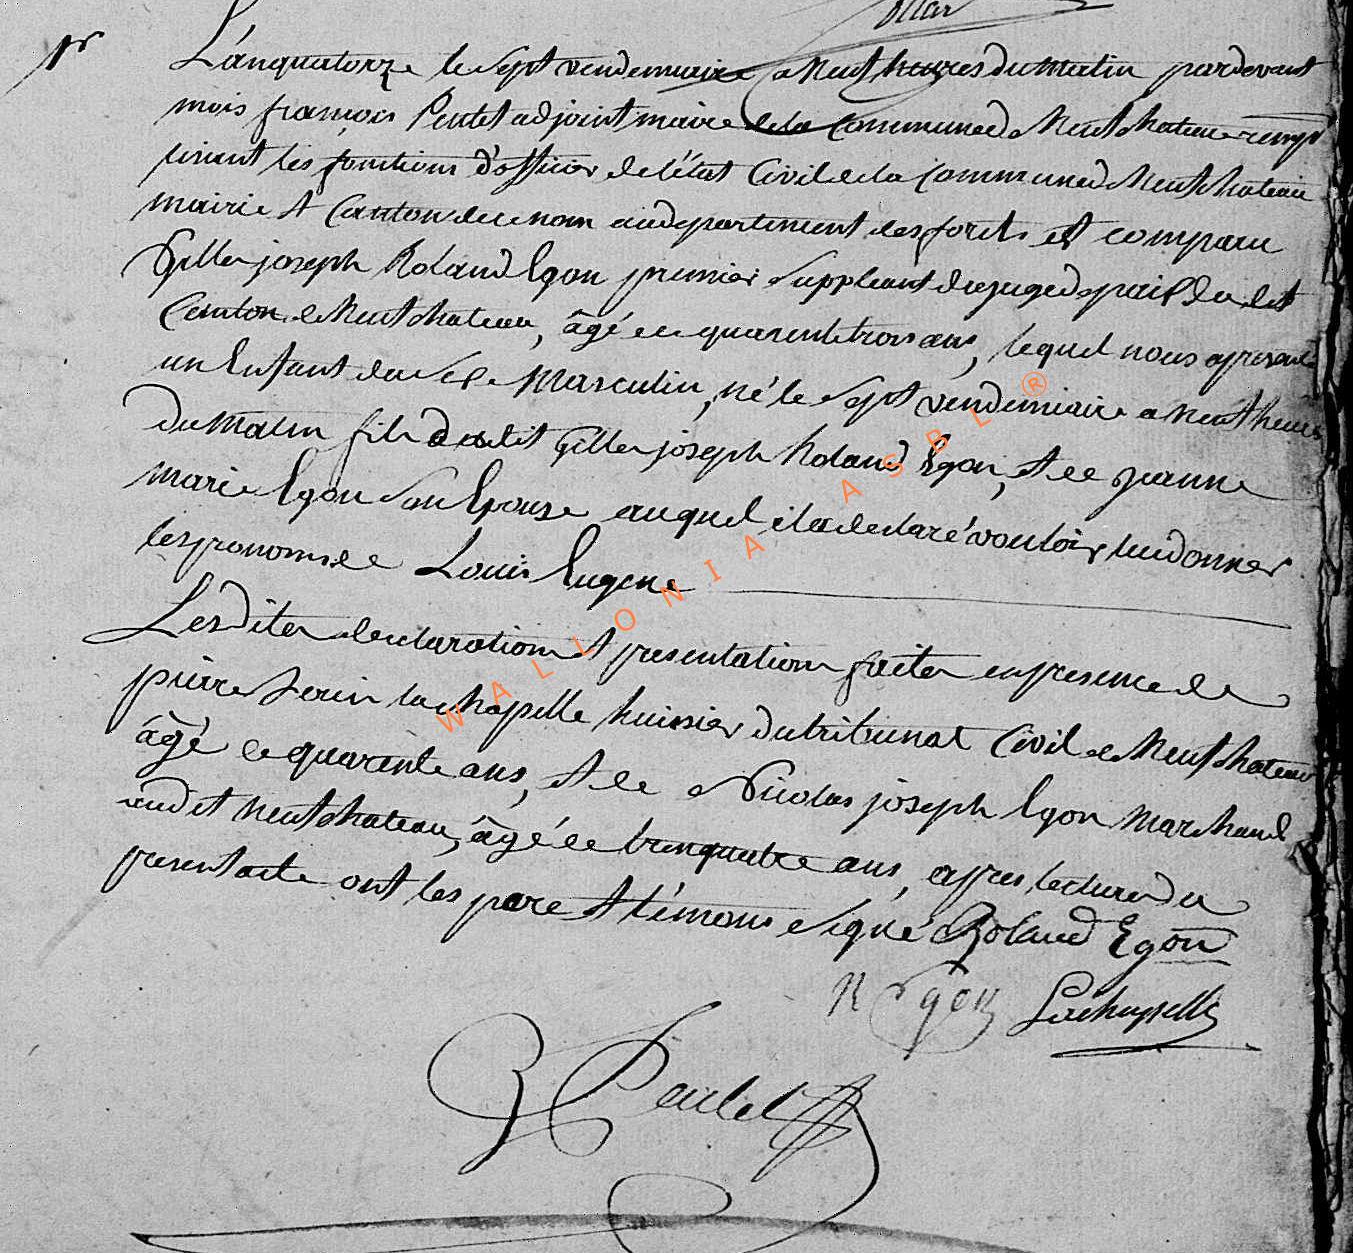 1r
L'an quatorze le sept vendemiaire a neuf heures du matin pardevant
mois françois Pentet adjoint maire de la Commune de Neufchateau remp
lissant les fonctions d'officier de l'état Civil de la Commune de Neufchateau
mairie et Canton de ce nom audepartement des forets est comparu
Gille joseph Roland Egon premier Suppleant du juge de paix du dit
Canton de Neufchateau, âgé de quarente trois ans, lequel nous apresenté
un Enfant du Sexe Masculin, né le Sept vendemiaire a neuf heures
du Matin fils dudit Gille joseph Roland Egon, et de jeanne
marie Egon Son Epouse auquel il a declaré vouloir lui donner
les prenoms de Louis Eugene
Les Dites declaration et presentation faites en presence de
pierre lachapelle huissier du tribunal Civil de Neufchateau
âgé de quarente ans, et de Nicolas joseph Egon Marchand
audit neufchateau, âgé de trenquatre ans, apres lecture du
present acte ont les pere et témoins Signé Roland Egon
N Egon Lachapelle
WALLONIA ASBL ®